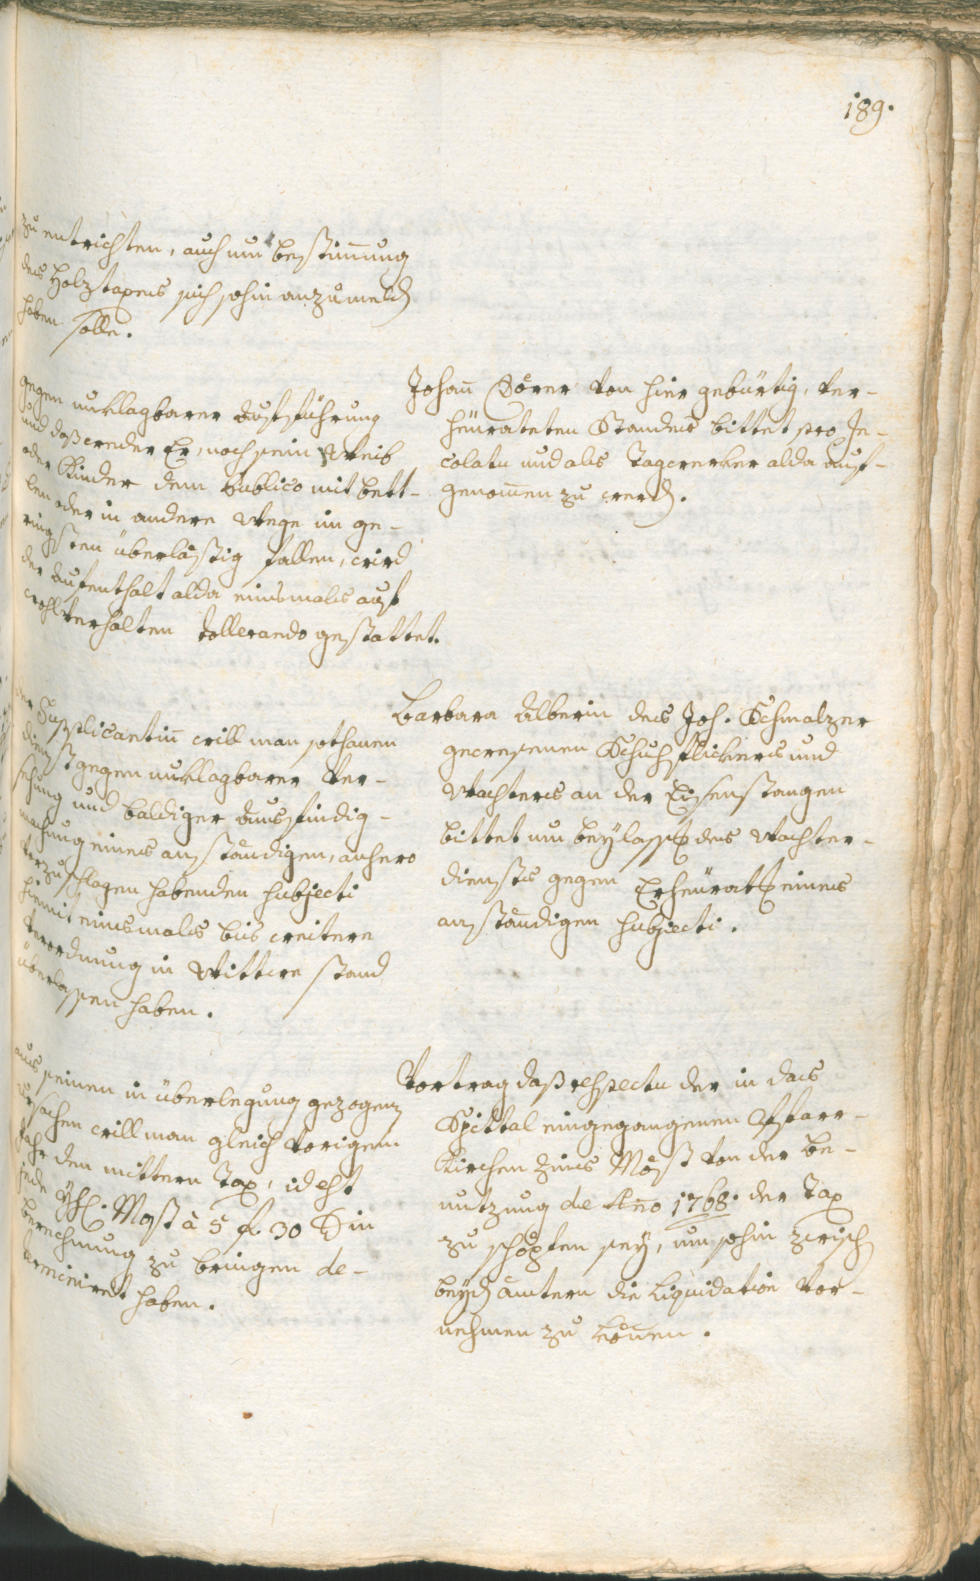 189.
zu entrichten, auch um bestimmung
des Holztaxens sich sohin anzumelden
haben solle.
gegen unklagbarer Aufführung
und daß weder Er, noch sein Weib
oder Kinder dem Publico mit bett-
len oder in andere Wege im ge-
ringsten überlästig fallen, wird
der Aufenthalt alda einsmals auf
wohlverhalten tollerando gestattet.
Johann Sörer von hier gebürtig, ver-
heürateten Standes bittet pro In-
colatu und als Tagwerker alda auf-
genommen zu werden.
der Supplicantin will man sothanen
dienst gegen unklagbarer Ver-
sehung und baldiger ausfindig-
machung eines anständigen, anhero
vorzuschlagen habenden subjecti
hiemit einsmals bis weitere
Verordnung in Wittwe stand
überlassen haben.
Barbara Alberin des Joh. Schmalzer
gewesenen Schuhflickers und
Wachters an der Eisenstangen
bittet um beylassung des Wachter-
diensts gegen Erheüratung eines
anständigen subjecti.
aus seinen in überlegung gezogenen
ursachen will man gleich vorigem
Jahr den mittern Tax, id est
jede Yhr. Most à 5 f. 30 x in
berechnung zu bringen de-
terminirt haben.
Vortrag daß respectu der in das
Spittal eingegangenen Pfarr-
Kirchen Zins Möst von der be-
nutzung de Año 1768. der Tax
zu schöpfen seÿ, um sohin zwischen
beÿden ämtern die Liquidation vor-
nehmen zu können.